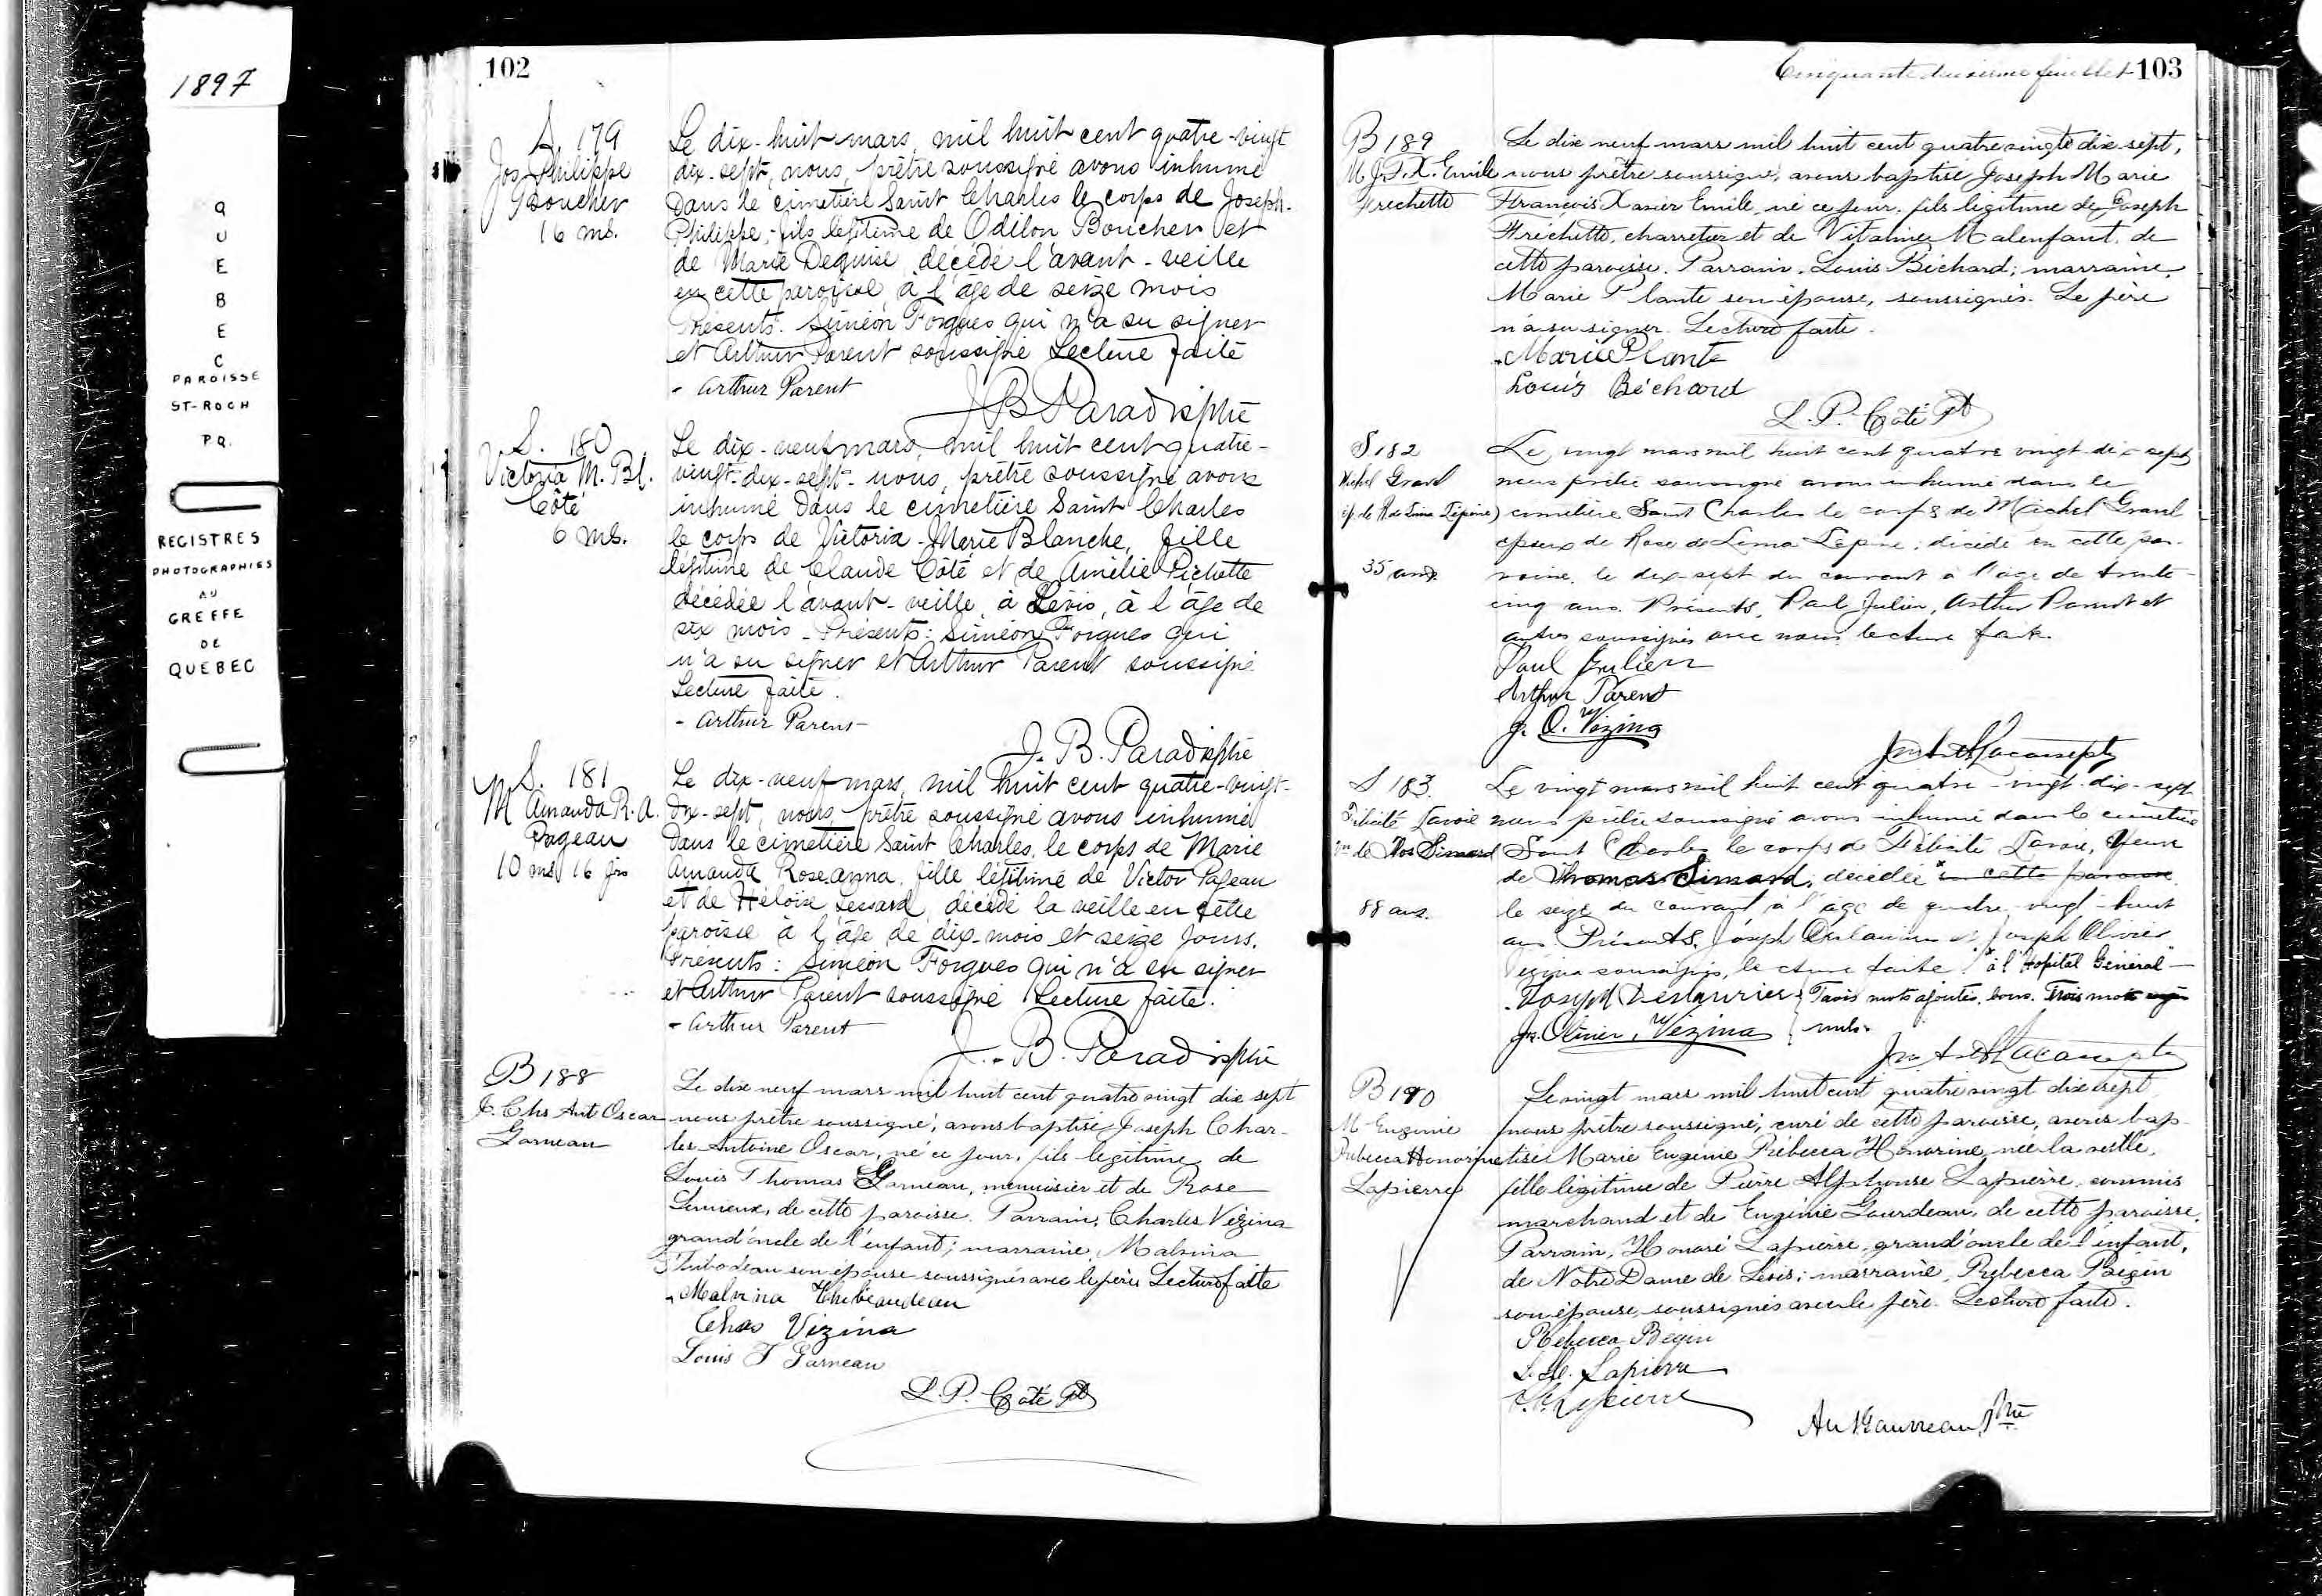 1897
Q
U
E
B
E
C
PAROISSE
ST-ROCH
P.Q.
REGISTRES
PHOTOGRAPHIES
AU
GREFFE
DE
QUEBEC
102
S. 179
Jos Philippe
Boucher
16 ms.
Le dix-huit mars, mil huit cent quatre-vingt
dix-sept, nous, prêtre soussigné avons inhumé
dans le cimetière Saint Charles le corps de Joseph-
Philippe, fils légitime de Odilon Boucher et
de Marie Deguise, décédé l'avant-veille
en cette paroisse, à l'âge de seize mois
Présents: Siméon Forgues qui n'a su signer
et Arthur Parent soussigné Lecture faite
- Arthur Parent
J B Paradis ptre
S. 180
Victoria M. Bl.
Côté
6 ms.
Le dix-neuf mars, mil huit cent quatre-
vingt-dix-sept nous, prêtre soussigné avons
inhumé dans le cimetière Saint Charles
le corps de Victoria-Marie Blanche, fille
légitime de Claude Côté et de Amélie Pichette
décédée l'avant-veille, à Lévis, à l'âge de
six mois - Présents: Siméon Forgues qui
n'a su signer et Arthur Parent soussigné
Lecture faite.
- Arthur Parent
J. B. Paradis ptre
S. 181
M Amanda R. A.
Pageau
10 ms 16 jrs
Le dix-neuf mars, mil huit cent quatre-vingt-
dix-sept, nous, prêtre soussigné avons inhumé
dans le cimetière Saint Charles, le corps de Marie
Amanda Roseanna, fille légitime de Victor Pageau
et de Héloïse Lessard, décédé la veille en cette
paroisse à l'âge de dix-mois et seize jours.
Présents: Siméon Forgues qui n'a su signer
et Arthur Parent soussigné Lecture faite.
- Arthur Parent
J. B. Paradis ptre
B 188
J. Chs Ant Oscar
Garneau
Le dix neuf mars mil huit cent quatre vingt dix sept
nous prêtre soussigné, avons baptisé Joseph Char-
les Antoine Oscar, né ce jour, fils légitime de
Louis Thomas Garneau, menuisier et de Rose
Lemieux, de cette paroisse. Parrain, Charles Vézina
grand'oncle de l'enfant; marraine, Malvina
Thibodeau son épouse soussignés avec le père Lecture faite
Malvina Thibeaudeau
Chas Vézina
Louis T Garneau
L. P. Côté Pt
Cinquante deuxième feuillet 103
B 189
M J. F. X. Emile
Frechette
Le dix neuf mars mil huit cent quatre vingt dix sept,
nous prêtre soussigné, avons baptisé Joseph Marie
François Xavier Emile, né ce jour, fils légitime de Joseph
Fréchette, charretier et de Vitaline Malenfant, de
cette paroisse. Parrain, Louis Béchard; marraine,
Marie Plante son épouse, soussignés. Le père
n'a su signer. Lecture faite.
Marie Plante
Louis Béchard
L. P. Côté Pt
S 182
Michel Gravel
ép. de R de Lima Lépine)
35 ans.
Le vingt mars mil huit cent quatre vingt dix sept
nous prêtre soussigné avons inhumé dans le
cimetière Saint Charles le corps de Michel Gravel
époux de Rose de Lima Lépine; décédé en cette pa-
roisse, le dix-sept du courant à l'âge de trente-
cinq ans. Présents, Paul Julien, Arthur Parent et
autres soussignés avec nous. lecture faite.
Paul Julien
Arthur Parent
J. O. Vézina
S 183.
Félicité Lavoie
Vve de Thos Simard
88 ans.
Le vingt mars mil huit cent quatre-vingt-dix-sept
nous prêtre soussigné avons inhumé dans le cimetière
Saint Charles le corps de Félicité Lavoie, Veuve
de Thomas Simard, décédée en cette paroisse
le seize du courant à l'âge de quatre-vingt-huit
ans Présents, Joseph Deslauriers et Joseph Olivier
Vézina soussignés, lecture faite. à l'Hopital Général-
Joseph Deslauriers Trois mots ajoutés, bons. Trois mots rayés
Jos. Olivier Vézina nuls.
B 190
M Eugénie
Rebecca Honorine
Lapierre
Le vingt mars mil huit cent quatre vingt dix sept
nous prêtre soussigné, curé de cette paroisse, avons bap-
tisé Marie Eugénie Rébecca Honorine, née la veille,
fille légitime de Pierre Alphonse Lapierre, commis
marchand et de Eugénie Gourdeau, de cette paroisse.
Parrain, Honoré Lapierre, grand'oncle de l'enfant,
de Notre Dame de Lévis; marraine, Rebecca Bégin
son épouse, soussignés avec le père. Lecture faite.
Rebecca Begin
L. H. Lapierre
Lapierre
Ant Gauvreau, Ptre